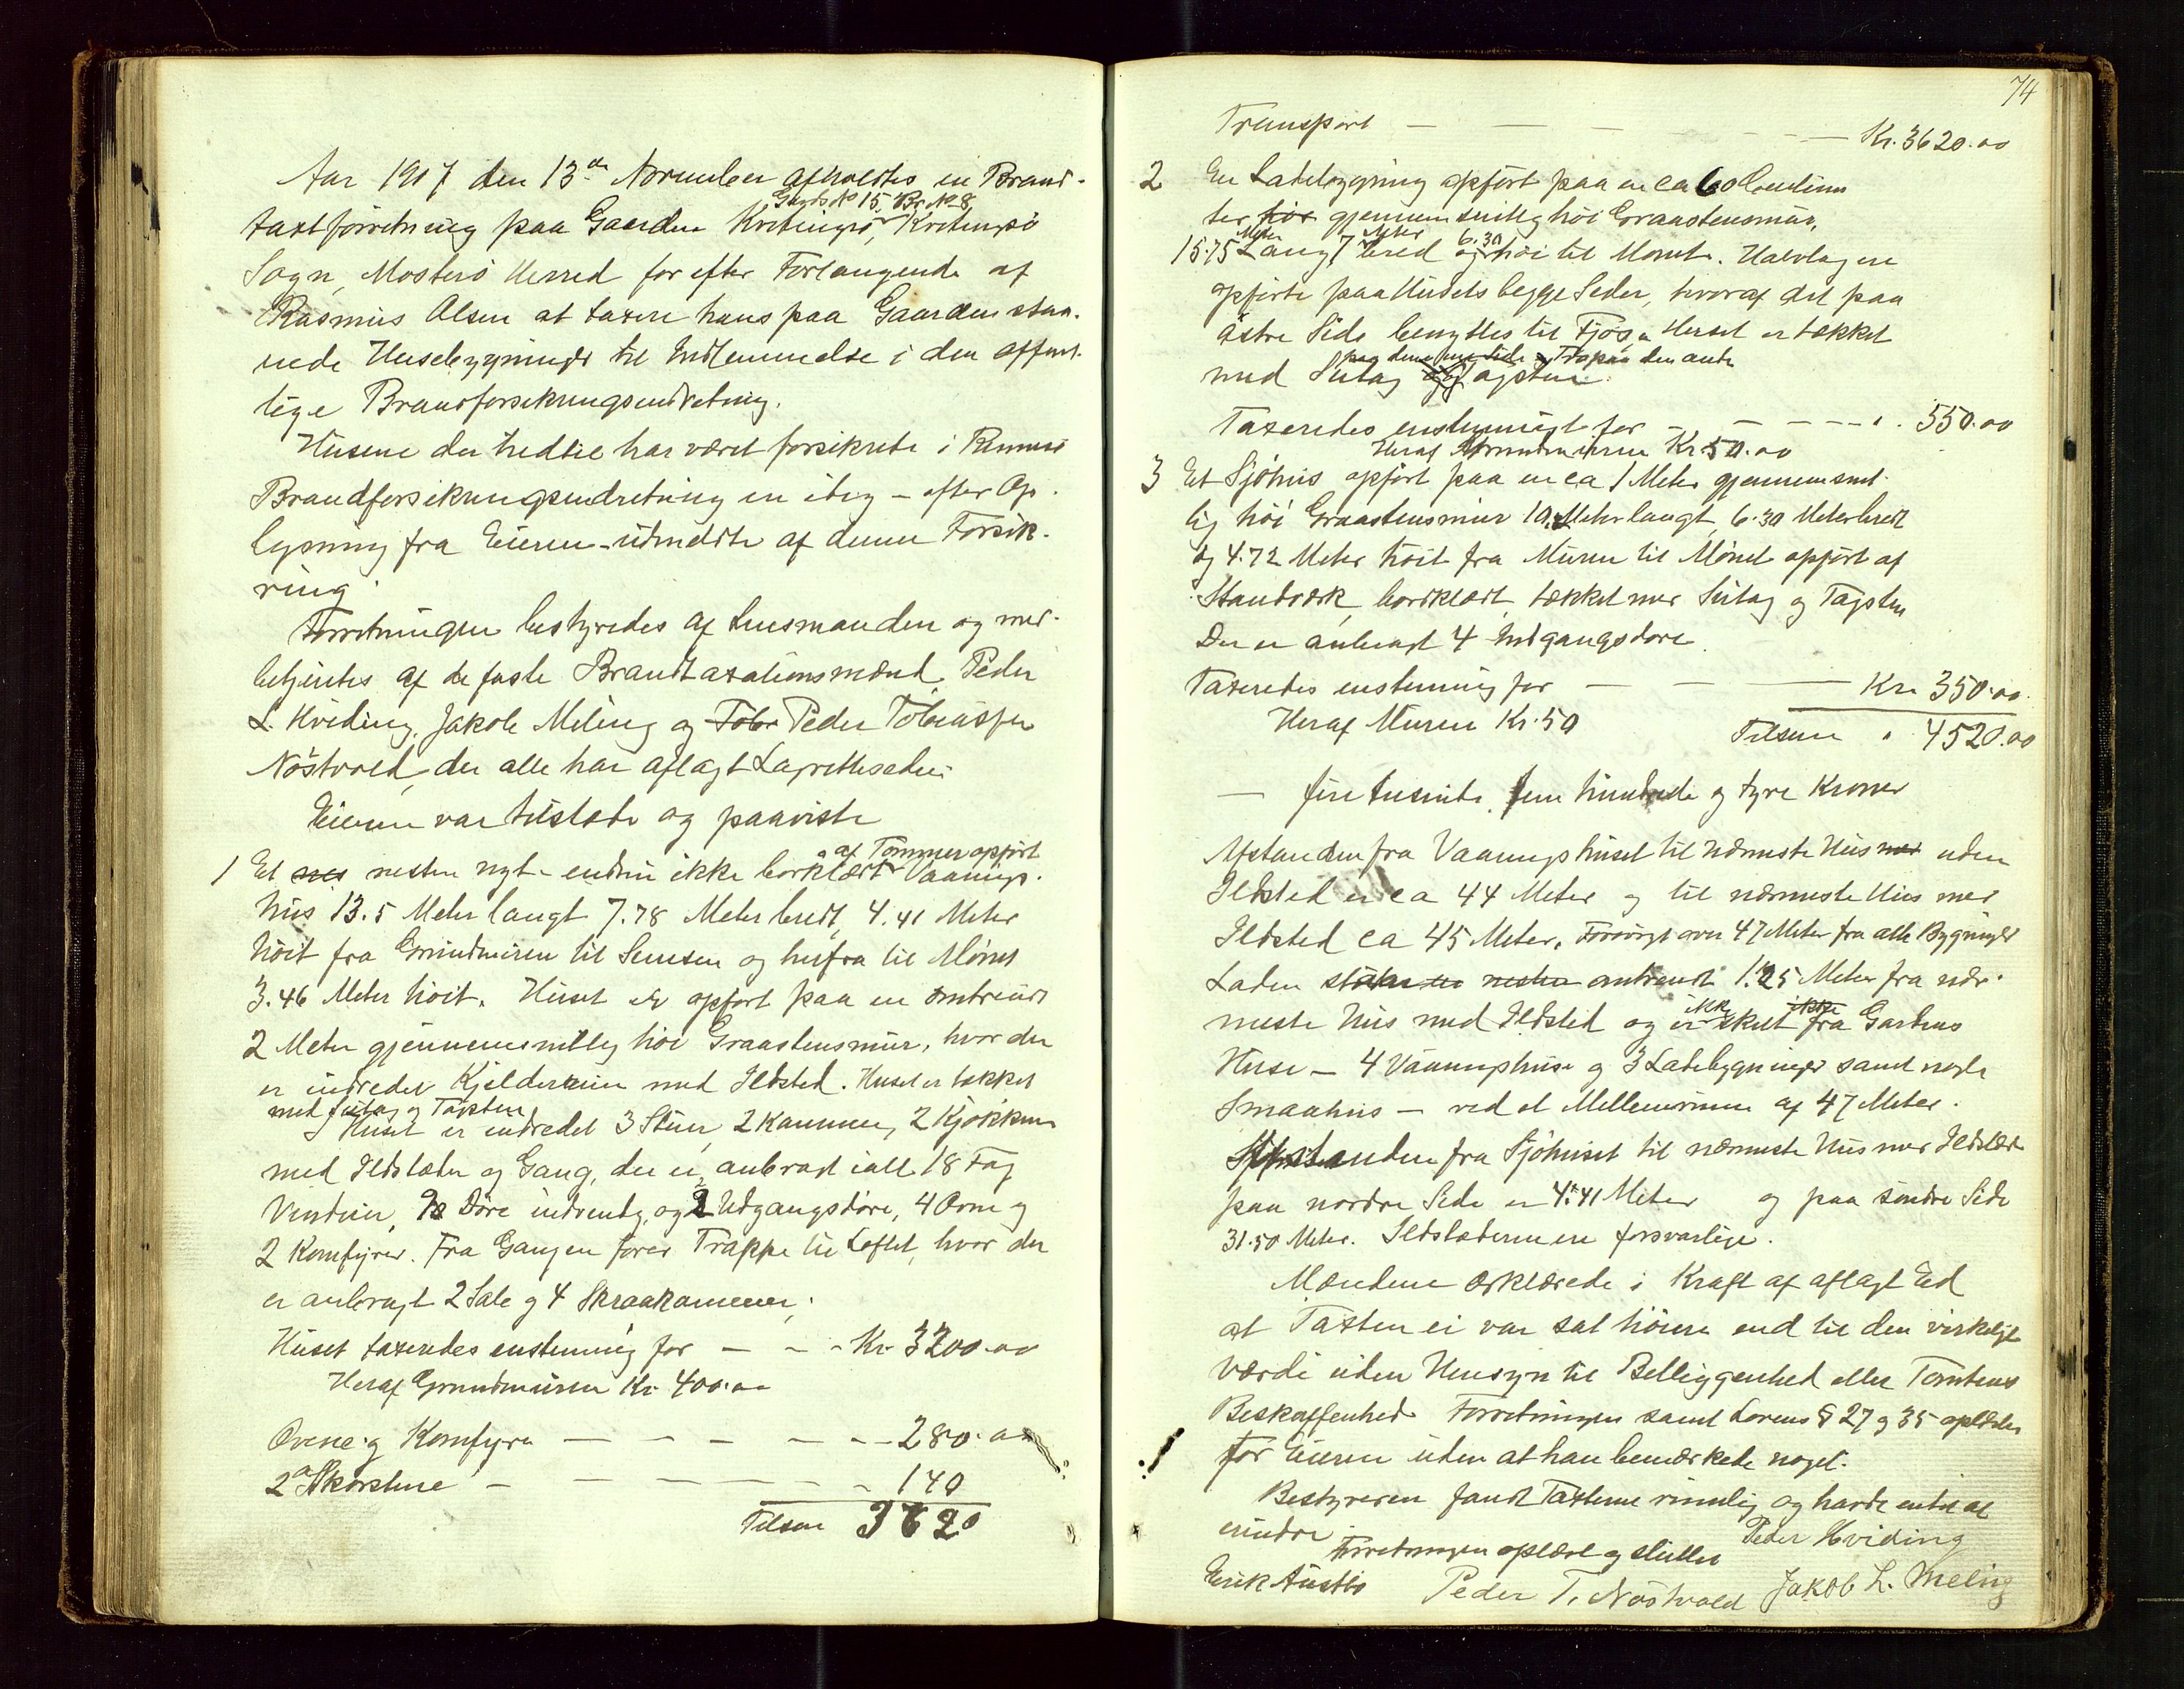 Aar 1907 den 13de November afholdtes en Brand-
taxtforretning paa Gaarden Kvitingsö, Gaards No 15 Br. No 8, Kvitingsö
Sogn, Mosterö Herred for efter Forlangende af
Rasmus Olsen at taxere hans paa Gaarden staa-
ende Husebygninger til Indlemmelse i den offent-
lige Brandforsikringsindretning.
Husene der hedtil har været forsikrede i Rennesö
Brandforsikringsindretning er idag - efter Op-
lysning fra Eieren - udmeldte af denne Forsik-
ring.
Forretningen bestyredes af Lensmanden og med-
betjentes af de faste Brandtaxationsmænd Peder
L. Hviding, Jakob Meling og Tobr Peder Tobiassen
Nöstvold, der alle har aflagt Lagretteseden
Eieren var tilstede og paaviste
1 Et næsten nyt - endnu ikke bordklædt - af Tömmer opfört Vaanings-
hus 13.5 Meter langt 7.78 Meter bredt, 4.41 Meter
höit fra Grundmuren til Gemsen og herfra til Mönet
3.46 Meter höit. Huset er opfört paa en omtrendt
2 Meter gjennemsnitlig höi Graastensmur, hvor der
er indredet Kjelderrum med Ildsted. Huset er tækket
med Sutag og Tagsten
I Huset er indredet 3 Stuer, 2 Kammer, 2 Kjökken
med Ildsteder og Gang, der er anbragt ialt 18 Fag
Vinduer, 12 Döre indvendig og 2 Udgangsdöre, 4 Ovne og
2 Komfyrer. Fra Gangen förer Trappe til Loftet, hvor der
er anbragt 2 Sale og 4 Skraakammer.
Huset taxeredes enstemmig for - - - Kr. 3200.00
Heraf Grundmuren Kr. 400.00
Ovene og Komfyre - - - - - - 280.00
2 Skorstene - - - - - - 140
Tilsam 3620
74
Transport - - - - - - Kr. 3620.00
2 En Ladebygning opfört paa en ca 60 Centime
ter höi gjennemsnitlig höi Graastensmur,
15.75 Meter Lang 7 Meter bred og 6.30 höi til Mönet. Halvtag er
opförte paa Husets begge Sider, hvoraf det paa
östre Side benyttes til Fjös. Huset er tækket
med Sutag paa den ene Side og Tro paa den anden og Tagsten.
Taxeredes enstemmigt for - - - - - " 550.00
Heraf Grundmuren Kr. 50.00
3 Et Sjöhus opfört paa en ca 1 Meter gjennemsnit-
lig höi Graastensmur 10. Meter langt, 6.30 Meter bredt
og 4.72 Meter höit fra Muren til Mönet opfört af
Standværk, bordklædt, tækket med Sutag og Tagsten
Der er anbragt 4 Indgangsdöre.
Taxeredes enstemmig for - - - Kr. 350.00
Heraf Muren Kr. 50
Tilsam " 4520.00
- fire tusinde, fem hundrede og tyve Kroner
Afstanden fra Vaaningshuset til nærmeste Hus med uden
Ildsted er ca 44 Meter og til nærmeste Hus med
Ildsted ca 45 Meter. Forövrigt over 47 Meter fra alle Bygninger
Laden omtrendt 1.25 Meter fra nær-
meste Hus med Ildsted og er ikke skilt ikke fra Gardens
Huse - 4 Vaaningshuse og 3 Ladebygninger samt nogle
Smaahus - ved et Mellemrum af 47 Meter.
Afstanden fra Sjöhuset til nærmeste Hus med Ildsted
paa nordre Side er 4.41 Meter og paa söndre Side
31.50 Meter. Ildstederne er forsvarlige.
Mændene erklærede i Kraft af aflagt Ed
at Taxten ei var sat höiere end til den virkelige
værdi uden Hensyn til Belliggenhed eller Tomtens
Beskaffenhed. Forretningen samt Lovens § 27 og 35 oplæstes
for Eieren uden at han bemærkede noget.
Bestyreren fandt Taxterne rimelig og havde intet at
erindre.
Forretningen oplæst og sluttet
Peder Hviding
Erik Austbö Peder T. Nöstvold Jakob L. Meling